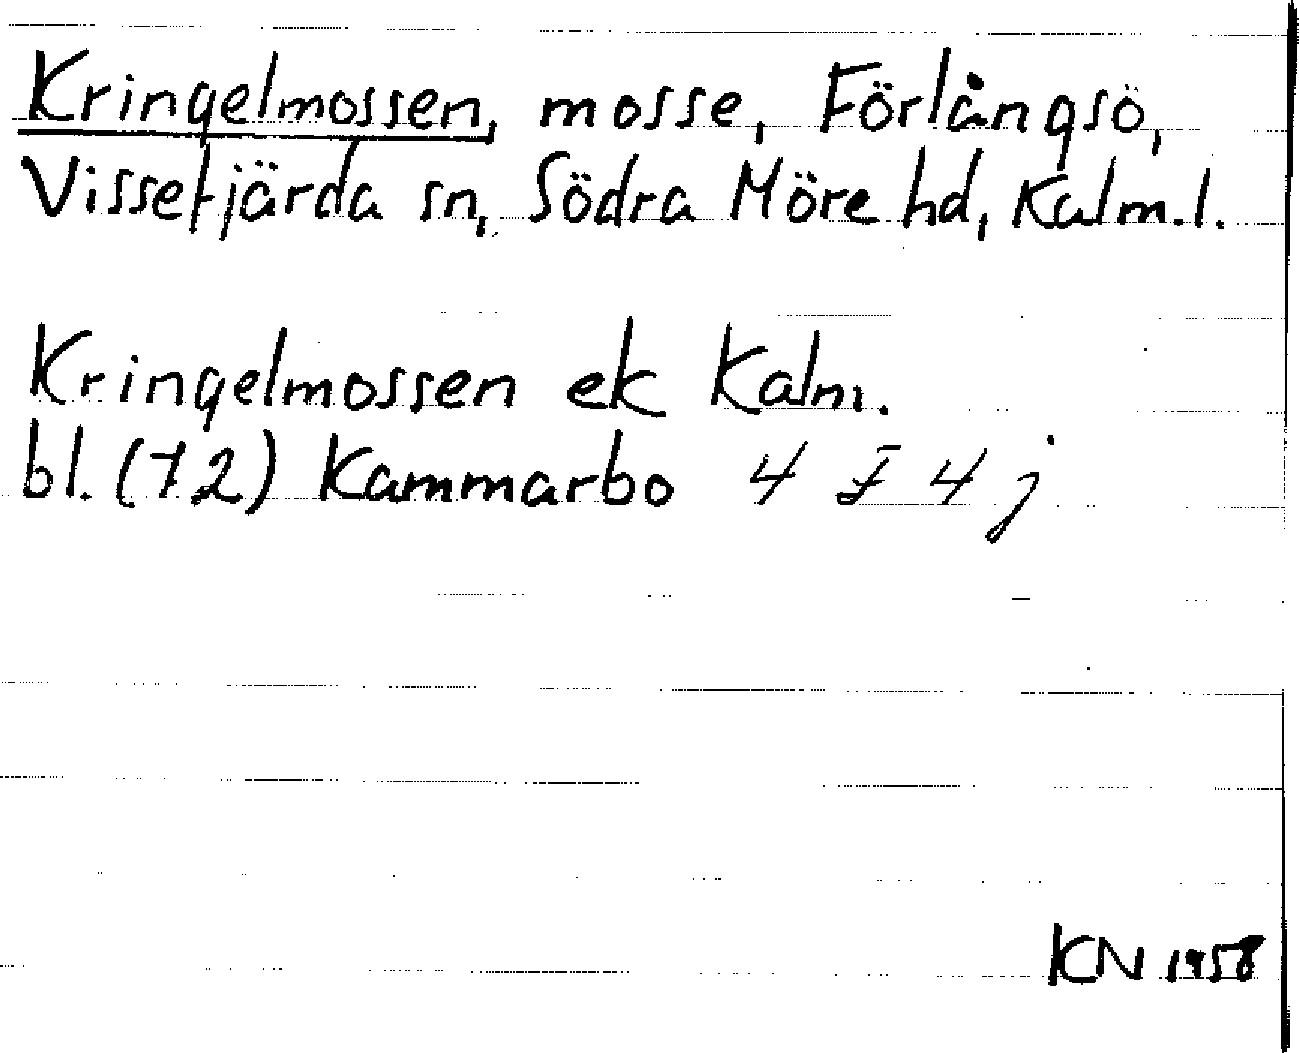 Kringelmossen, mosse, Förlångsö,
Vissefjärda sn, Södra Möre hd, Kalm.l.
Kringelmossen ek Kalm.
bl. (72) Kammarbo 4 F 4 j
KN 1958